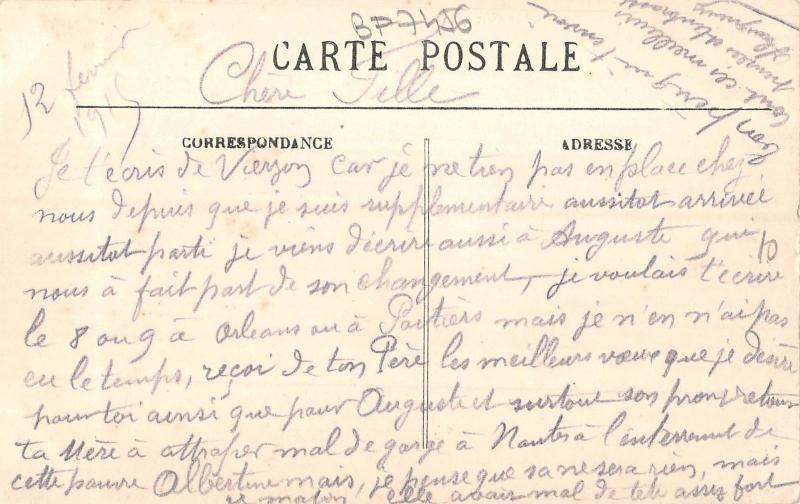 BP7456
CARTE POSTALE
12 fevrier 1915
Chère Fille
CORRESPONDANCE
ADRESSE
Je t'ecris de Vierzon car je ne tien pas en place chez
nous depuis que je suis supplementaire aussitot arrivée
aussitot parti je viens d'écrire aussi à Auguste qui
nous à fait part de son changement, je voulais t'ecrire
le 8 ou 9 à Orleans ou à Poitiers mais je n'en n'ai pas
eu le temps, reçoi de ton Père les meilleurs vœux que je désire
pour toi ainsi que pour Auguste et surtout son prompt retour
ta Mère à attraper mal de gorge à Nantes à l'enterrement de
cette pauvre Albertine mais, je pense que sa ne sera rien, mais
ce matin elle avait mal de tete assez fort
10
ton Père qui t'envoie
tout ces meilleurs